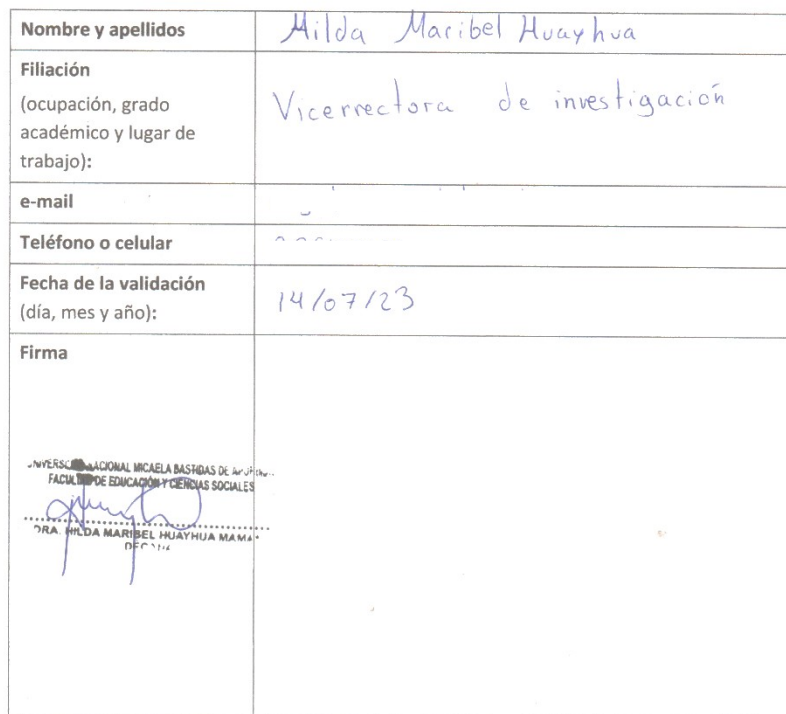 Nombre y apellidos
Hilda Maribel Huayhua
Filiación
(ocupación, grado
académico y lugar de
trabajo):
Vicerrectora de investigación
e-mail
Teléfono o celular
Fecha de la validación
(día, mes y año):
14/07/23
Firma
NACIONAL MICAELA BASTIDAS DE
FACULTAD DE EDUCACIÓN Y CIENCIAS SOCIALES
DRA. HILDA MARIBEL HUAYHUA